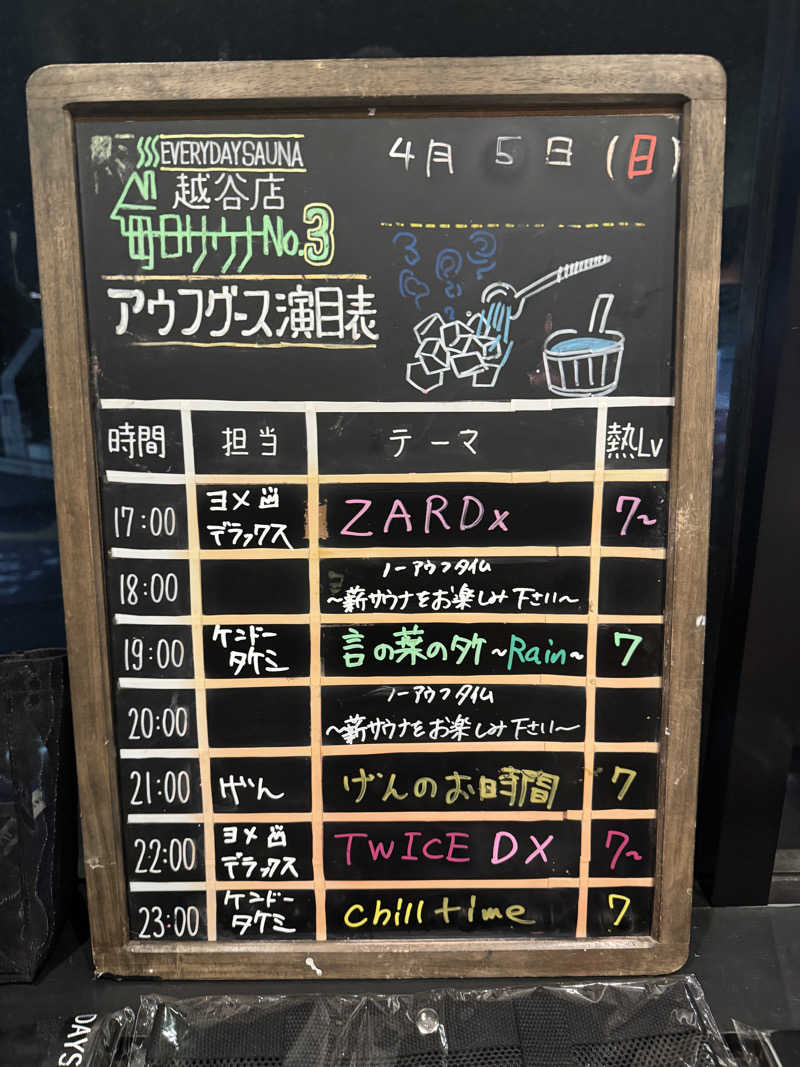 EVERYDAYSAUNA
越谷店
毎日サウナNo.3
4月 5日 (日)
アウフグース演目表
時間 担当 テーマ 熱Lv
17:00 ヨメ山 デラックス ZARDx 7~
18:00 ノーアウフタイム
~薪サウナをお楽しみ下さい~
19:00 ケンドー タケミ 言の葉のタケ~Rain~ 7
20:00 ノーアウフタイム
~薪サウナをお楽しみ下さい~
21:00 げん げんのお時間 7
22:00 ヨメ山 デラックス TWICE DX 7~
23:00 ケンドー タケミ chill time 7
DAYS